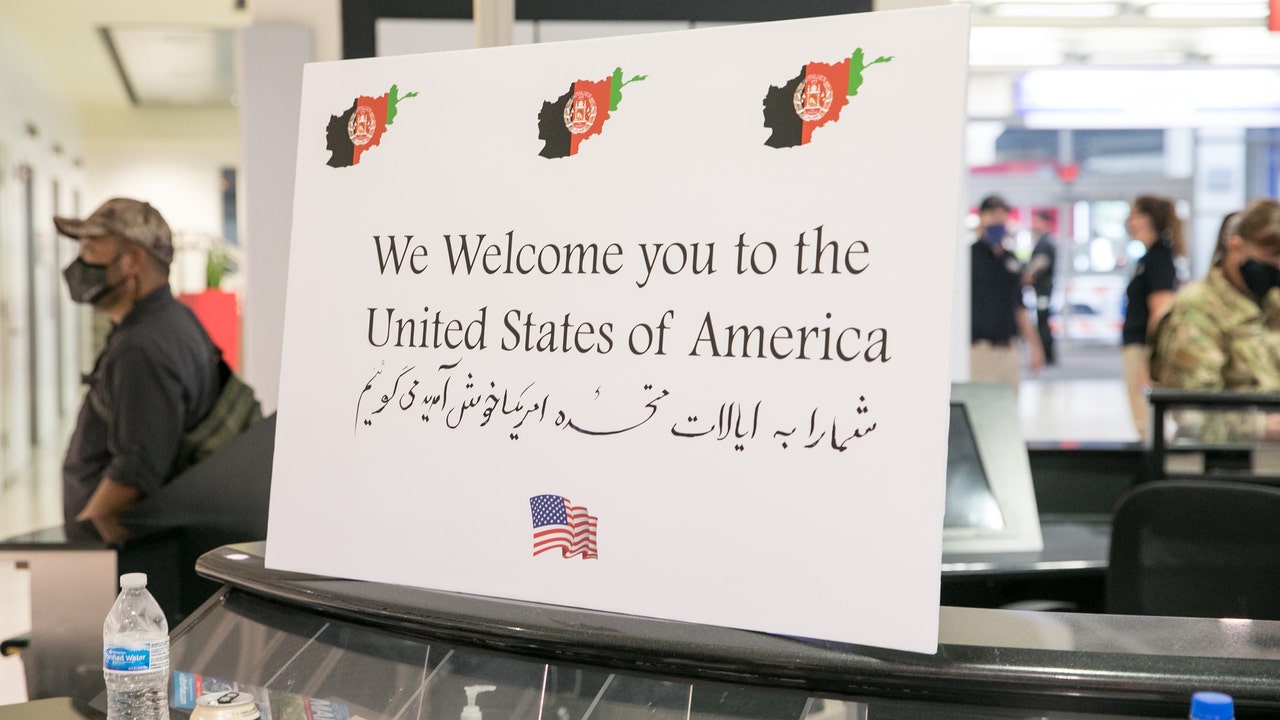 We Welcome you to the
United States of America
شمارا به ایالات متحدۀ امریکا خوش آمدید می گوئیم
Purified Water